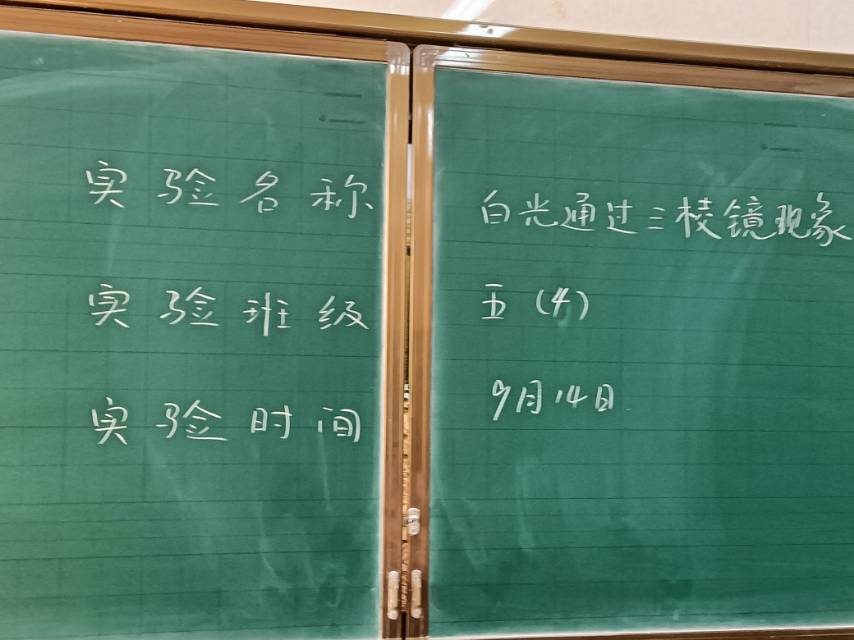 实验名称 白光通过三棱镜现象
实验班级 五(4)
实验时间 9月14日